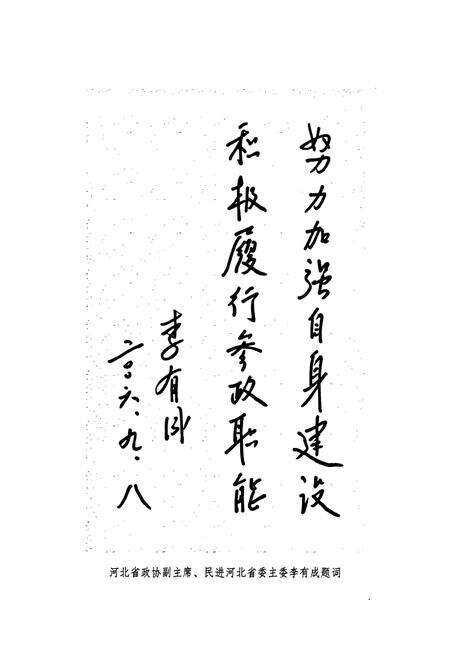 努力加强自身建设
积极履行参政职能
李有成
二〇〇六.九.八
河北省政协副主席、民进河北省委主委李有成题词